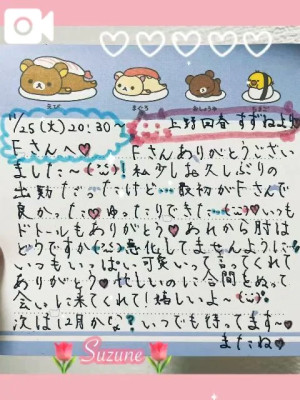 えび
まぐろ
おしょうゆ
たまご
11/25(火)20:30〜
上野回春 すずねより
Fさんへ♥
Fさんありがとうござい
ました〜！私少しお久しぶりの
出勤だったけど…最初がFさんで
良かった♥ゆったりできた…いつも
ドトールもありがとう♥あれから肘は
どうですか 悪化してませんように
いつもいっぱい可愛いって言ってくれて
ありがとう♥忙しいのに合間をぬって
会いに来てくれて！嬉しいよ〜
次は12月かな？いつでも待ってます〜♥
またね♥
Suzune